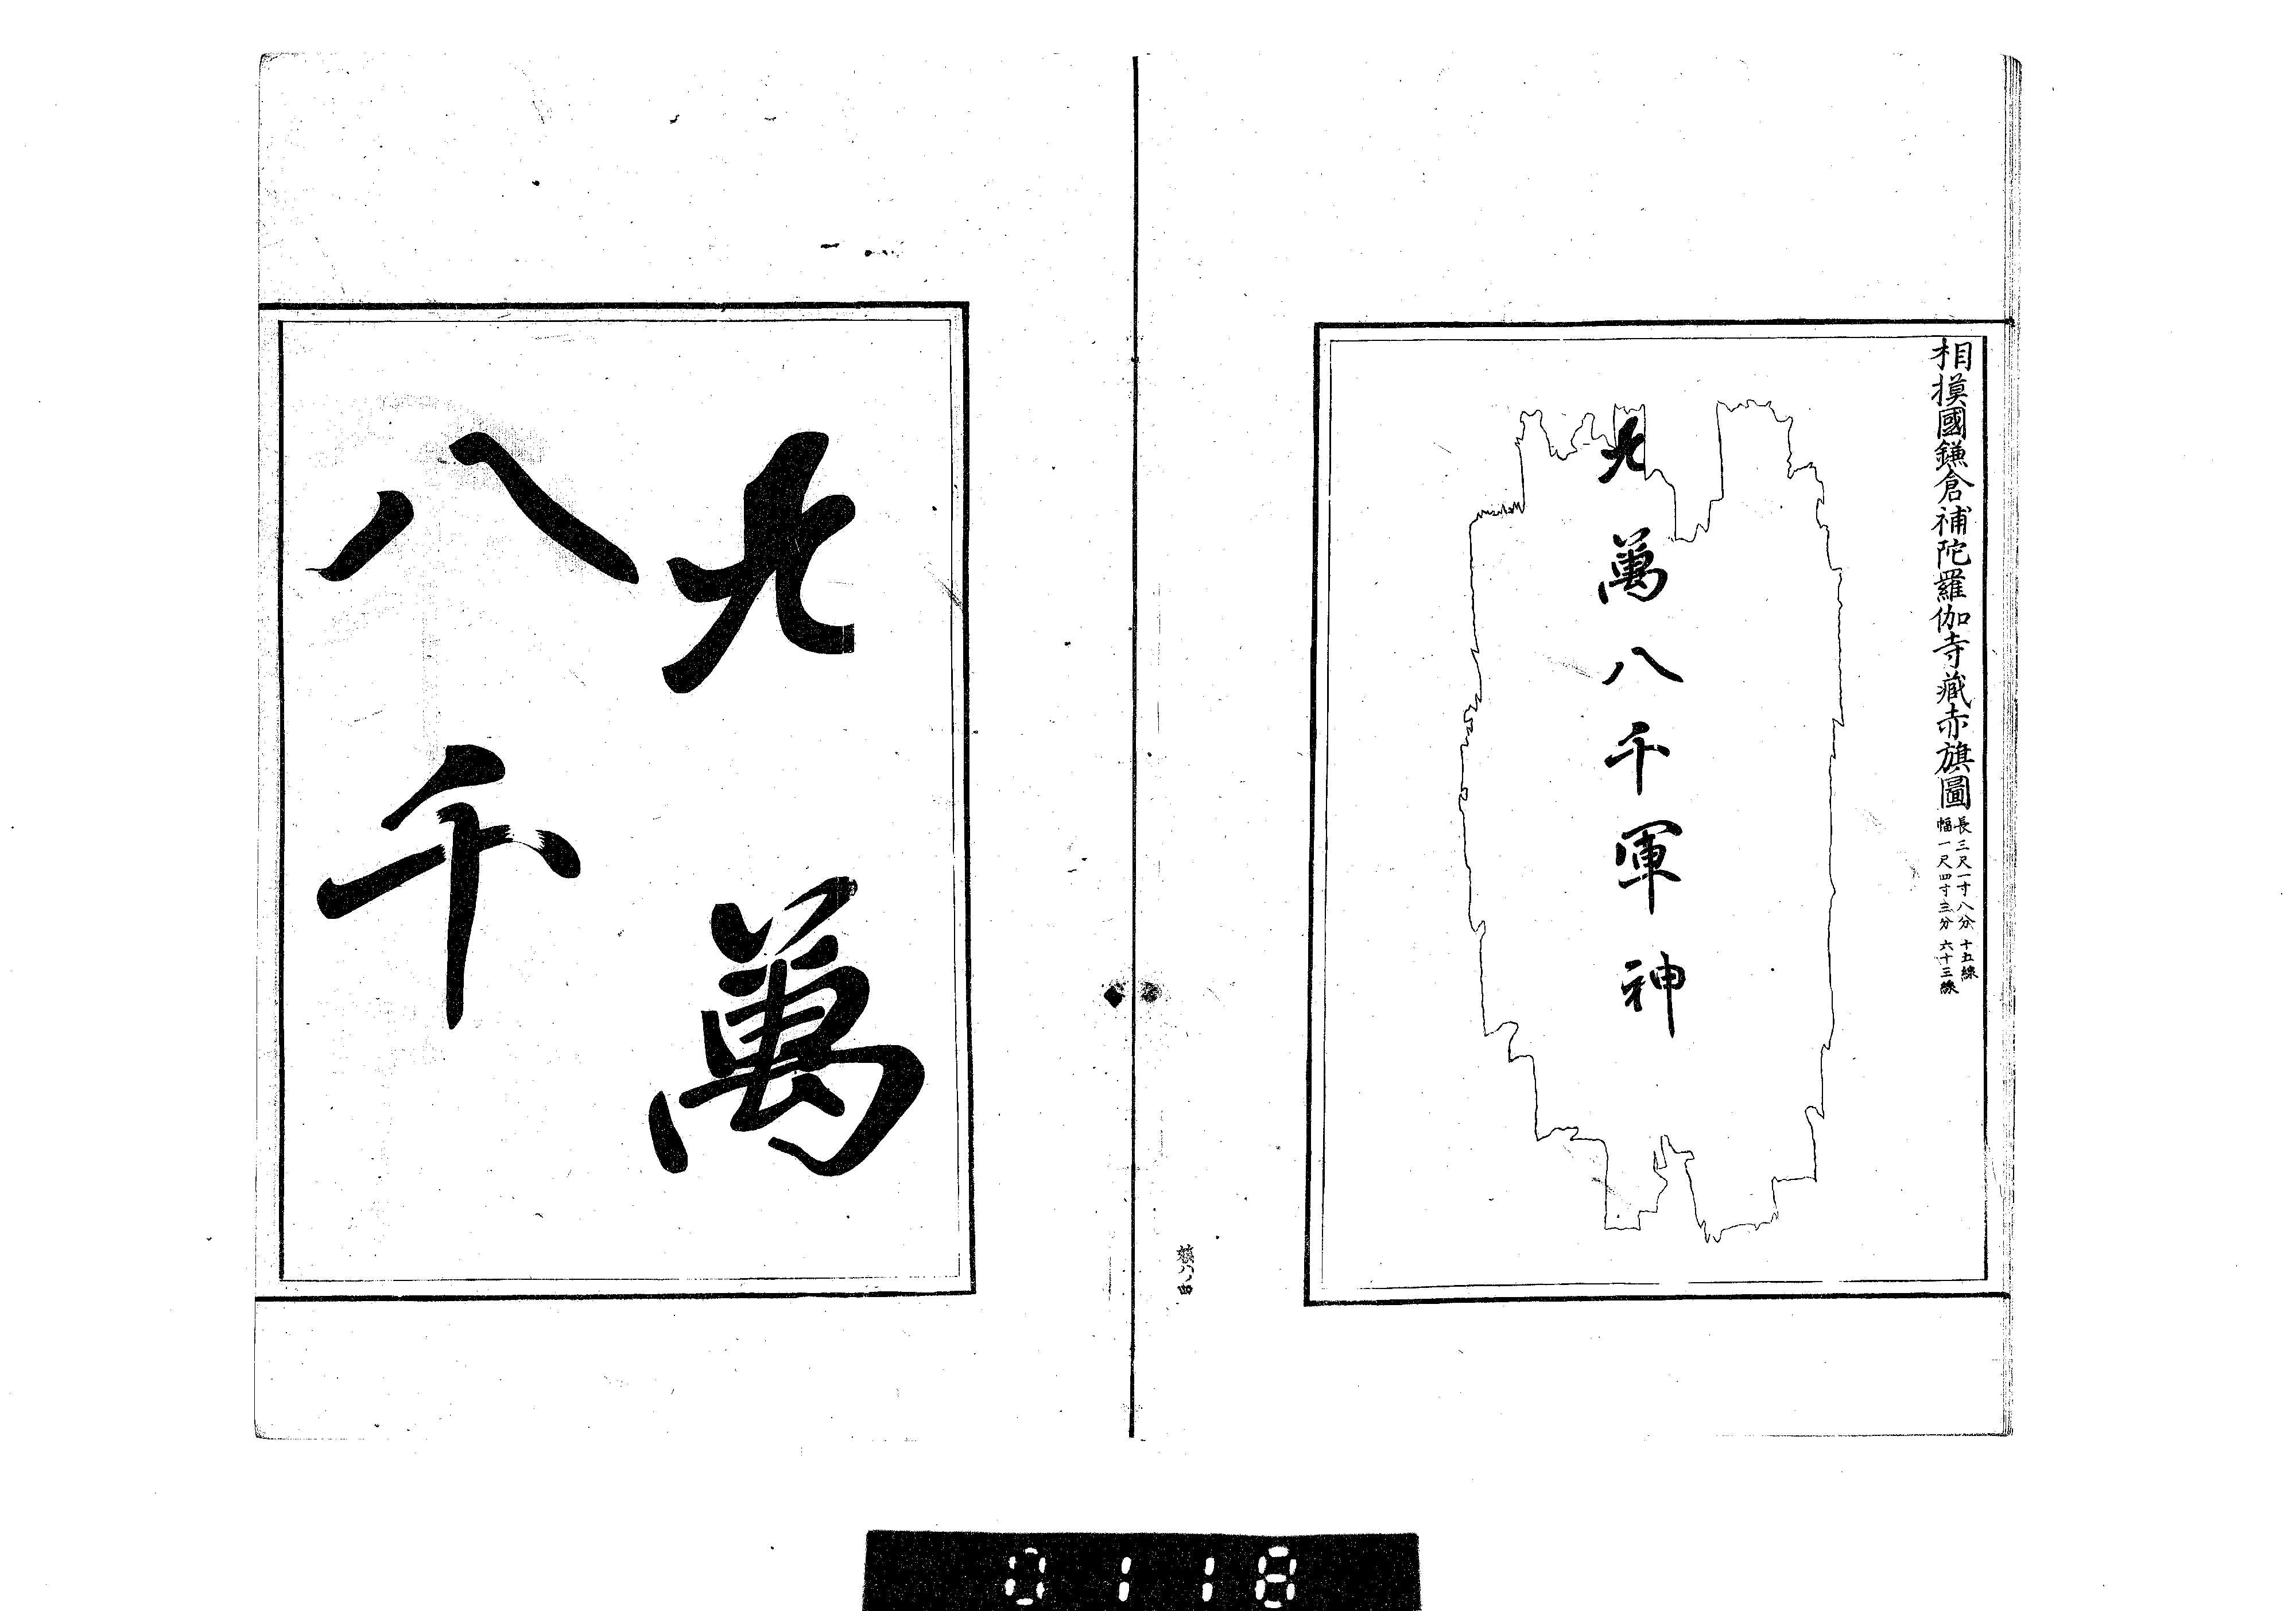 相摸國鎌倉補陀羅伽寺藏赤旗圖
長三尺一寸八分 十五線
幅一尺四寸三分 六十三線
北萬八千軍神
北萬
八千
0118